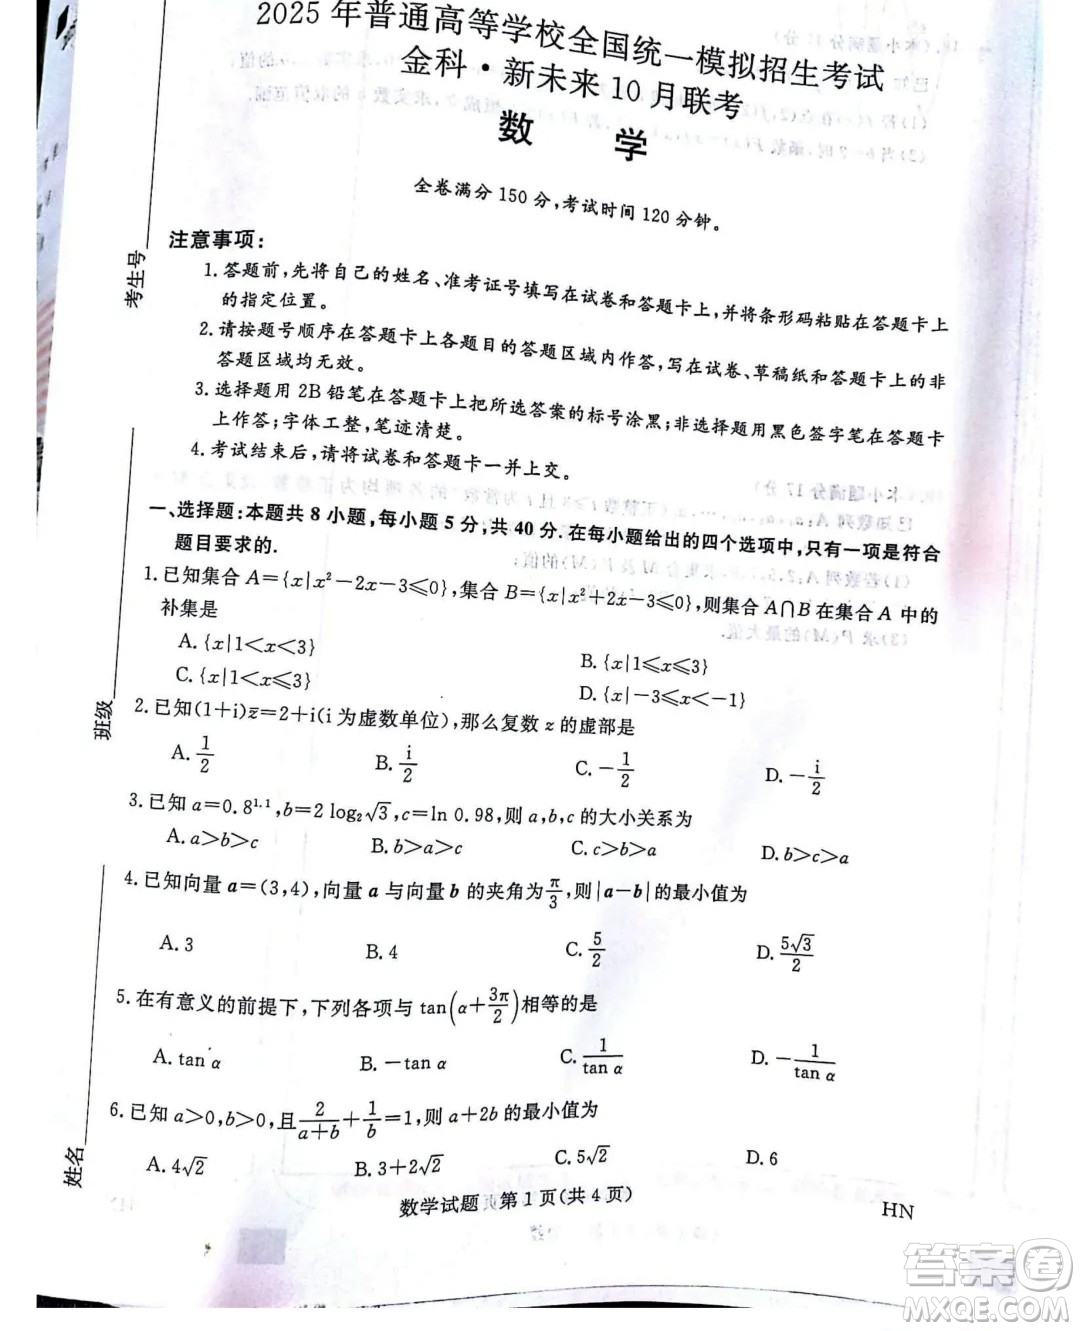 2025 年普通高等学校全国统一模拟招生考试
金科·新未来10月联考
数 学
全卷满分 150 分,考试时间 120 分钟。
注意事项:
1. 答题前,先将自己的姓名、准考证号填写在试卷和答题卡上,并将条形码粘贴在答题卡上
的指定位置。
2. 请按题号顺序在答题卡上各题目的答题区域内作答,写在试卷、草稿纸和答题卡上的非
答题区域均无效。
3. 选择题用 2B 铅笔在答题卡上把所选答案的标号涂黑;非选择题用黑色签字笔在答题卡
上作答;字体工整,笔迹清楚。
4. 考试结束后,请将试卷和答题卡一并上交。
一、选择题:本题共 8 小题,每小题 5 分,共 40 分.在每小题给出的四个选项中,只有一项是符合
题目要求的.
1. 已知集合 A={x|x²-2x-3≤0},集合 B={x|x²+2x-3≤0},则集合 A∩B 在集合 A 中的
补集是
A. {x|1<x<3} B. {x|1≤x≤3}
C. {x|1<x≤3} D. {x|-3≤x<-1}
2. 已知(1+i)z̅=2+i(i 为虚数单位),那么复数 z 的虚部是
A. 1/2 B. i/2 C. -1/2 D. -i/2
3. 已知 a=0.8^1.1,b=2 log₂√3,c=ln 0.98,则 a,b,c 的大小关系为
A. a>b>c B. b>a>c C. c>b>a D. b>c>a
4. 已知向量 a=(3,4),向量 a 与向量 b 的夹角为π/3,则|a-b|的最小值为
A. 3 B. 4 C. 5/2 D. 5√3/2
5. 在有意义的前提下,下列各项与 tan(α+3π/2)相等的是
A. tan α B. -tan α C. 1/tan α D. -1/tan α
6. 已知 a>0,b>0,且2/(a+b)+1/b=1,则 a+2b 的最小值为
A. 4√2 B. 3+2√2 C. 5√2 D. 6
数学试题 第 1 页(共 4 页)
HN
考生号
班级
姓名
答案卷
MXQE.COM